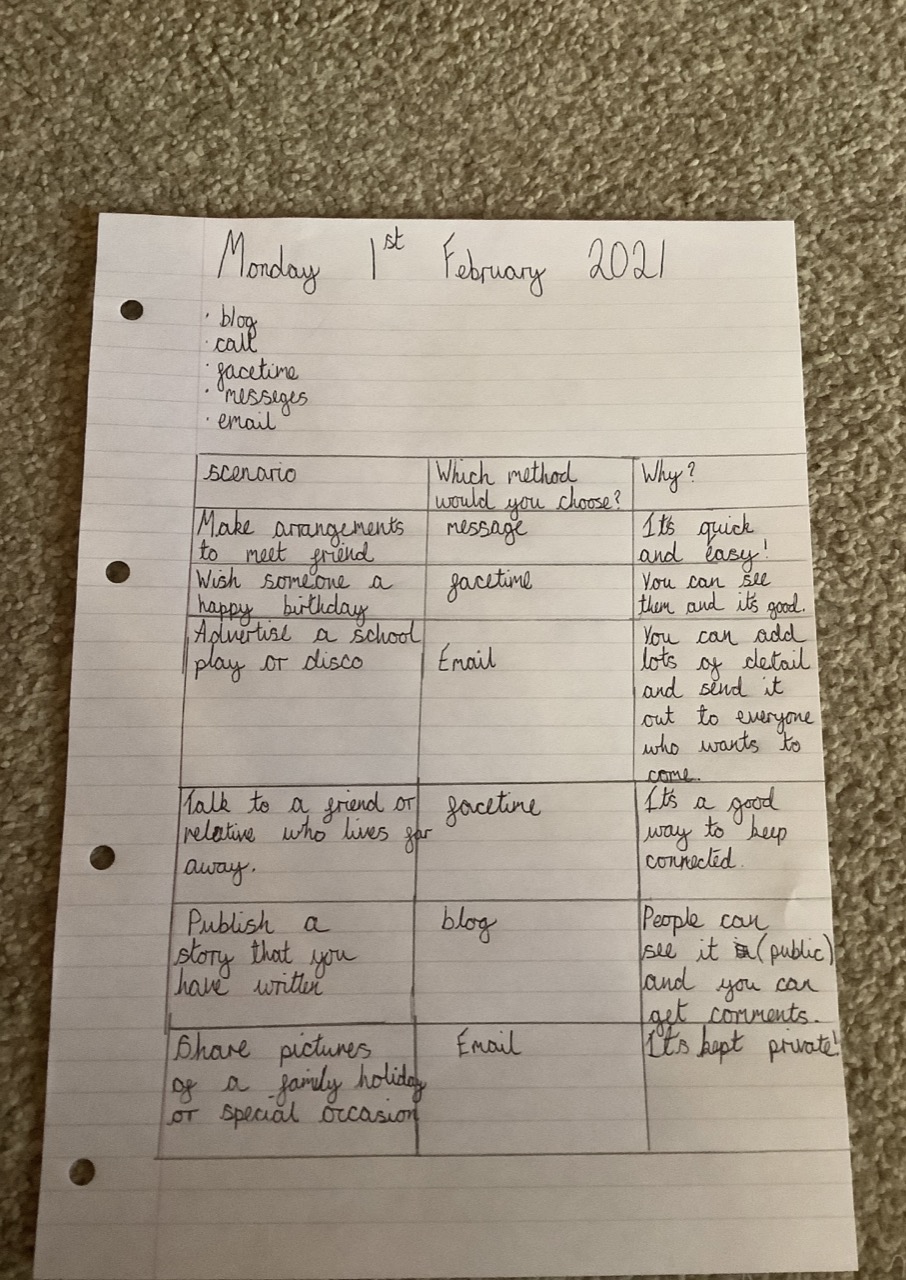 Monday 1st February 2021
· blog
· call
· facetime
· messeges
· email
scenario
Which method
would you choose?
Why?
Make arangements
to meet friend
message
It's quick
and easy!
Wish someone a
happy birthday
facetime
You can see
them and its good.
Advertise a school
play or disco
Email
You can add
lots of detail
and send it
out to everyone
who wants to
come.
Talk to a friend or
relative who lives far
away.
facetime
Its a good
way to keep
connected.
Publish a
story that you
have written
blog
People can
see it (public)
and you can
get comments.
Share pictures
of a family holiday
or special occasion
Email
It's kept private!